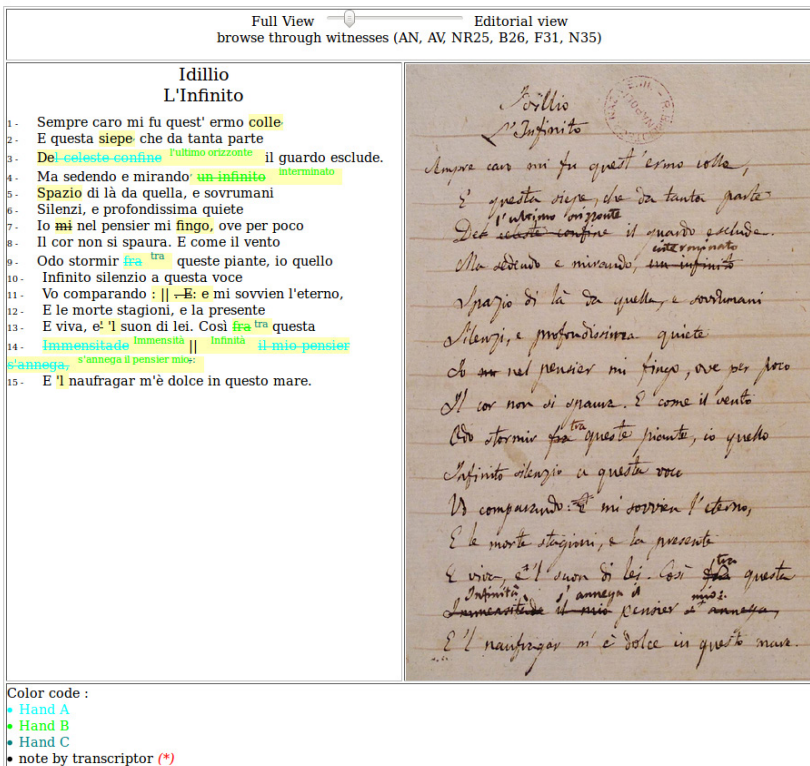 Full View Editorial view
browse through witnesses (AN, AV, NR25, B26, F31, N35)
Idillio
L'Infinito
1 - Sempre caro mi fu quest' ermo colle
2 - E questa siepe che da tanta parte
3 - Del celeste confine l'ultimo orizzonte il guardo esclude.
4 - Ma sedendo e mirando un infinito interminato
5 - Spazio di là da quella, e sovrumani
6 - Silenzi, e profondissima quiete
7 - Io mi nel pensier mi fingo, ove per poco
8 - Il cor non si spaura. E come il vento
9 - Odo stormir fra tra queste piante, io quello
10 - Infinito silenzio a questa voce
11 - Vo comparando : || . E: e mi sovvien l'eterno,
12 - E le morte stagioni, e la presente
13 - E viva, e' 'l suon di lei. Così fra tra questa
14 - Immensitade Immensità || Infinità il mio pensier
s'annega, s'annega il pensier mio:
15 - E 'l naufragar m'è dolce in questo mare.
Idillio
L'Infinito
Sempre caro mi fu quest'ermo colle,
E questa siepe, che da tanta parte
l'ultimo orizzonte
Del celeste confine il guardo esclude.
interminato
Ma sedendo e mirando, un infinito
Spazio di là da quella, e sovrumani
Silenzi, e profondissima quiete
Io mi nel pensier mi fingo, ove per poco
Il cor non si spaura. E come il vento
tra
Odo stormir fra queste piante, io quello
Infinito silenzio a questa voce
Vo comparando: E mi sovvien l'eterno,
E le morte stagioni, e la presente
tra
E viva, e 'l suon di lei. Così fra questa
Infinità s'annega il mio:
Immensitade il mio pensier s'annega,
E 'l naufragar m'è dolce in questo mare.
Color code :
Hand A
Hand B
Hand C
note by transcriptor (*)